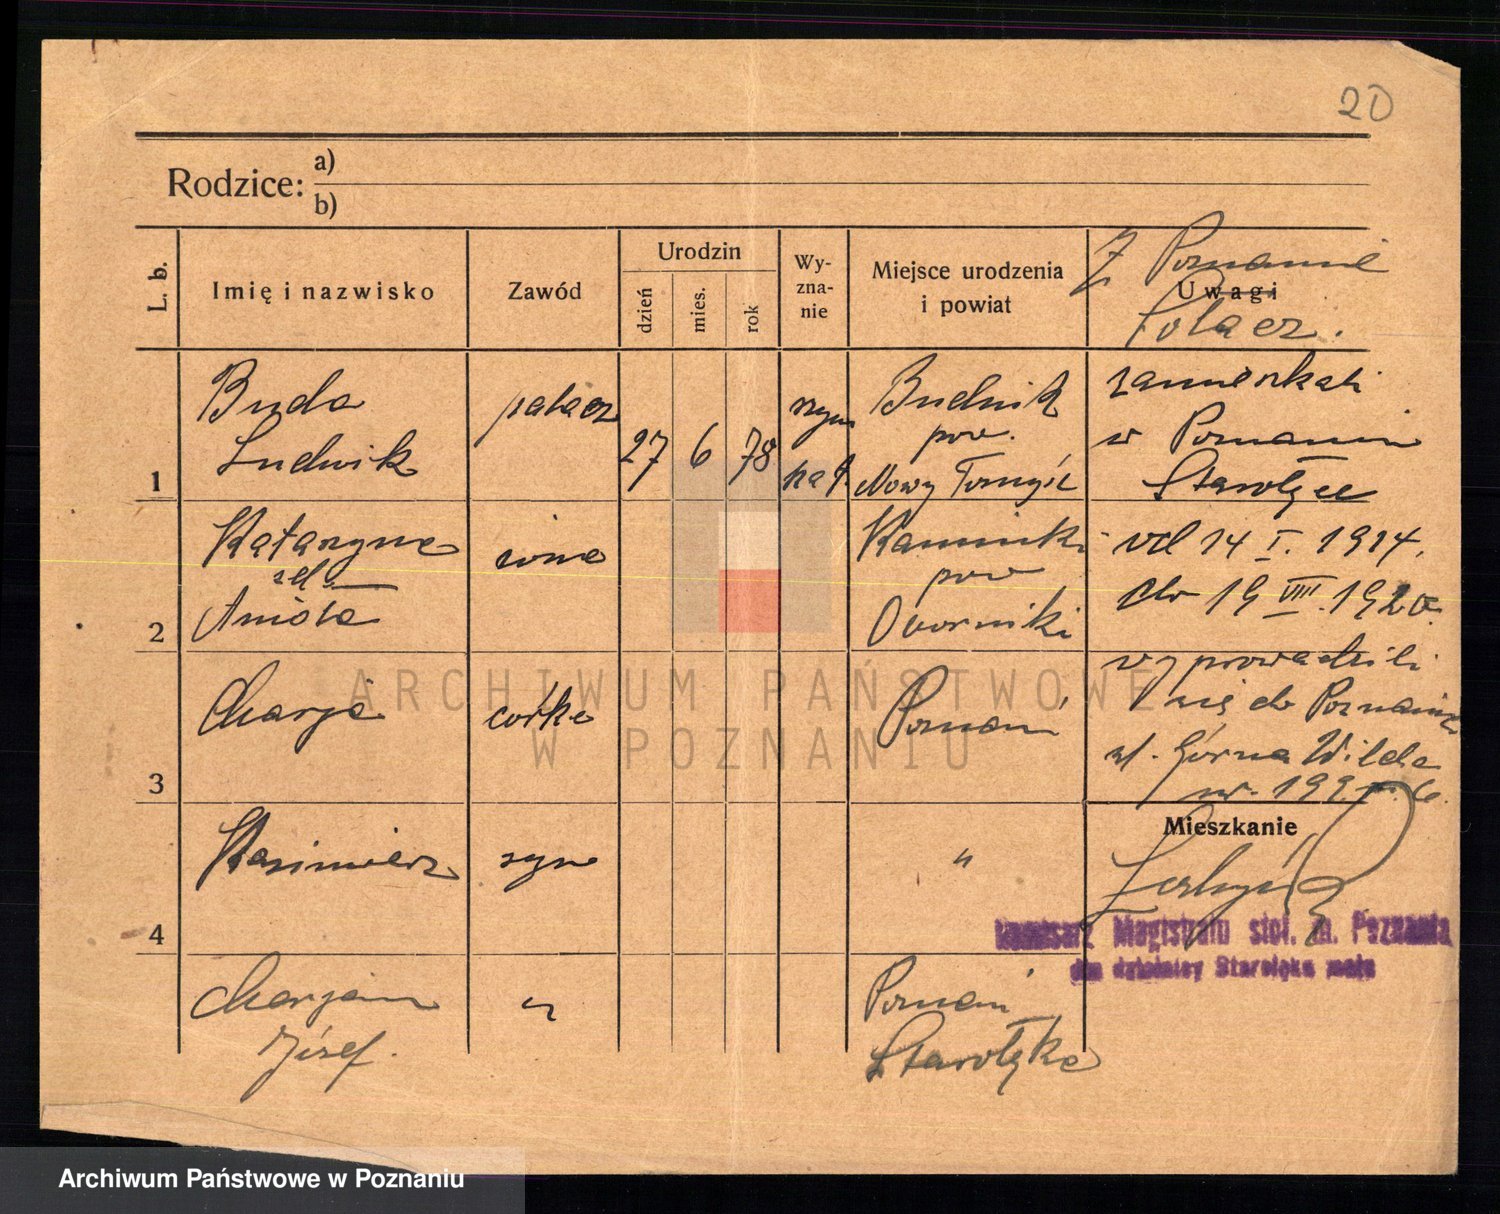 20
Rodzice: a)
b)
L. b.
Imię i nazwisko
Zawód
Urodzin
dzień
mies.
rok
Wy-
zna-
nie
Miejsce urodzenia
i powiat
Uwagi
Z Poznania
Sołacz.
1
Buda
Ludwik
palacz
27 6 78
rzym
kat.
Budnik
pow.
Nowy Tomyśl
zamieszkali
w Poznaniu
Starołęce
2
Katarzyna
Anioła
żona
pow
Oborniki
od 14 I. 1914.
do 19 VIII. 1920.
3
Marja
córka
Poznań
wyprowadzili
się do Poznania
ul. Górna Wilda
nr.
4
Kazimierz
syn
"
Mieszkanie
Komisarz Magistratu stoł. m. Poznania
dla dzielnicy Starołęka mała
Marjan
Józef.
"
Poznań
Starołęka
ARCHIWUM PAŃSTWOWE
W POZNANIU
Archiwum Państwowe w Poznaniu